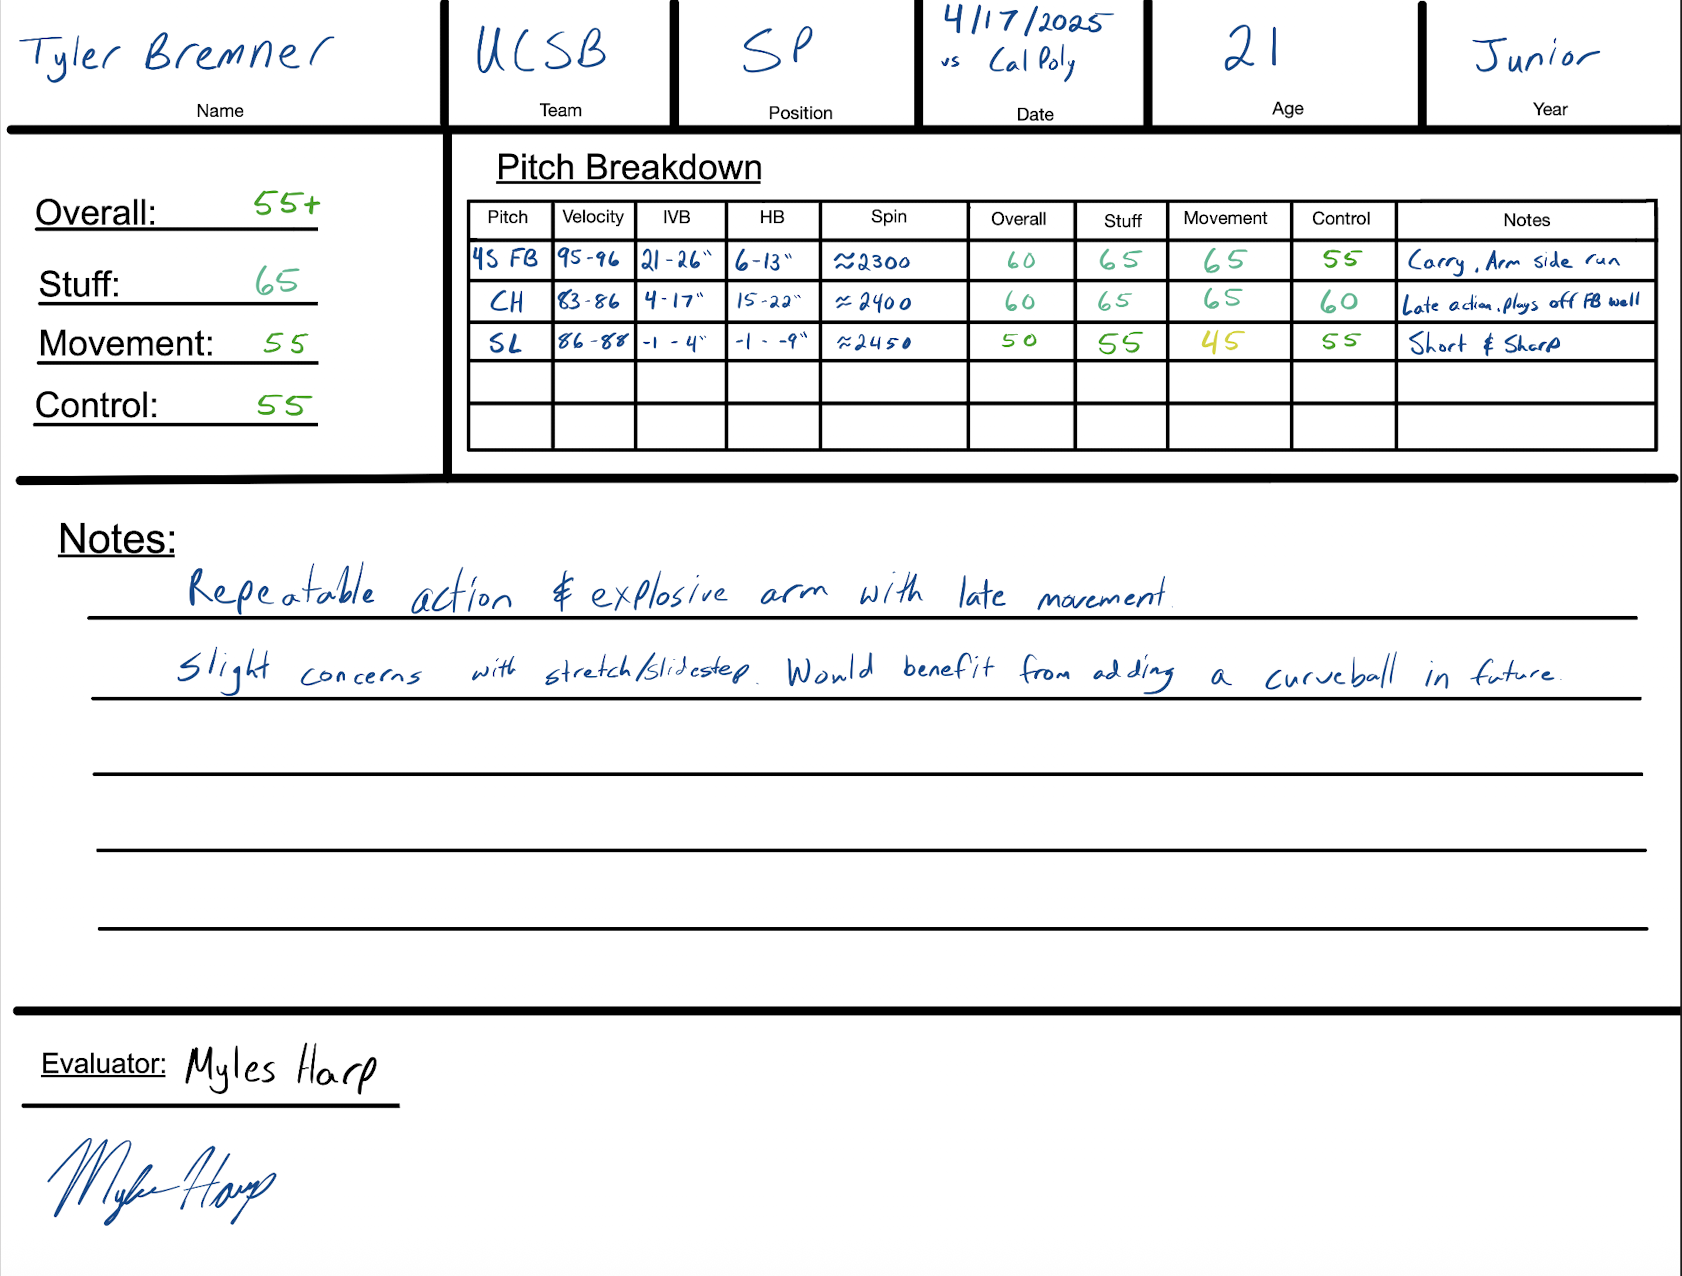 Tyler Bremner UCSB SP 4/17/2025 vs Cal Poly 21 Junior
Name Team Position Date Age Year
Overall: 55+
Stuff: 65
Movement: 55
Control: 55
Pitch Breakdown
Pitch Velocity IVB HB Spin Overall Stuff Movement Control Notes
4S FB 95-96 21-26" 6-13" ≈2300 60 65 65 55 Carry, Arm side run
CH 83-86 4-17" 15-22" ≈2400 60 65 65 60 Late action, plays off FB well
SL 86-88 -1 - 4" -1 - -9" ≈2450 50 55 45 55 Short & Sharp
Notes:
Repeatable action & explosive arm with late movement.
Slight concerns with stretch/slidestep. Would benefit from adding a curveball in future.
Evaluator: Myles Harp
Myles Harp